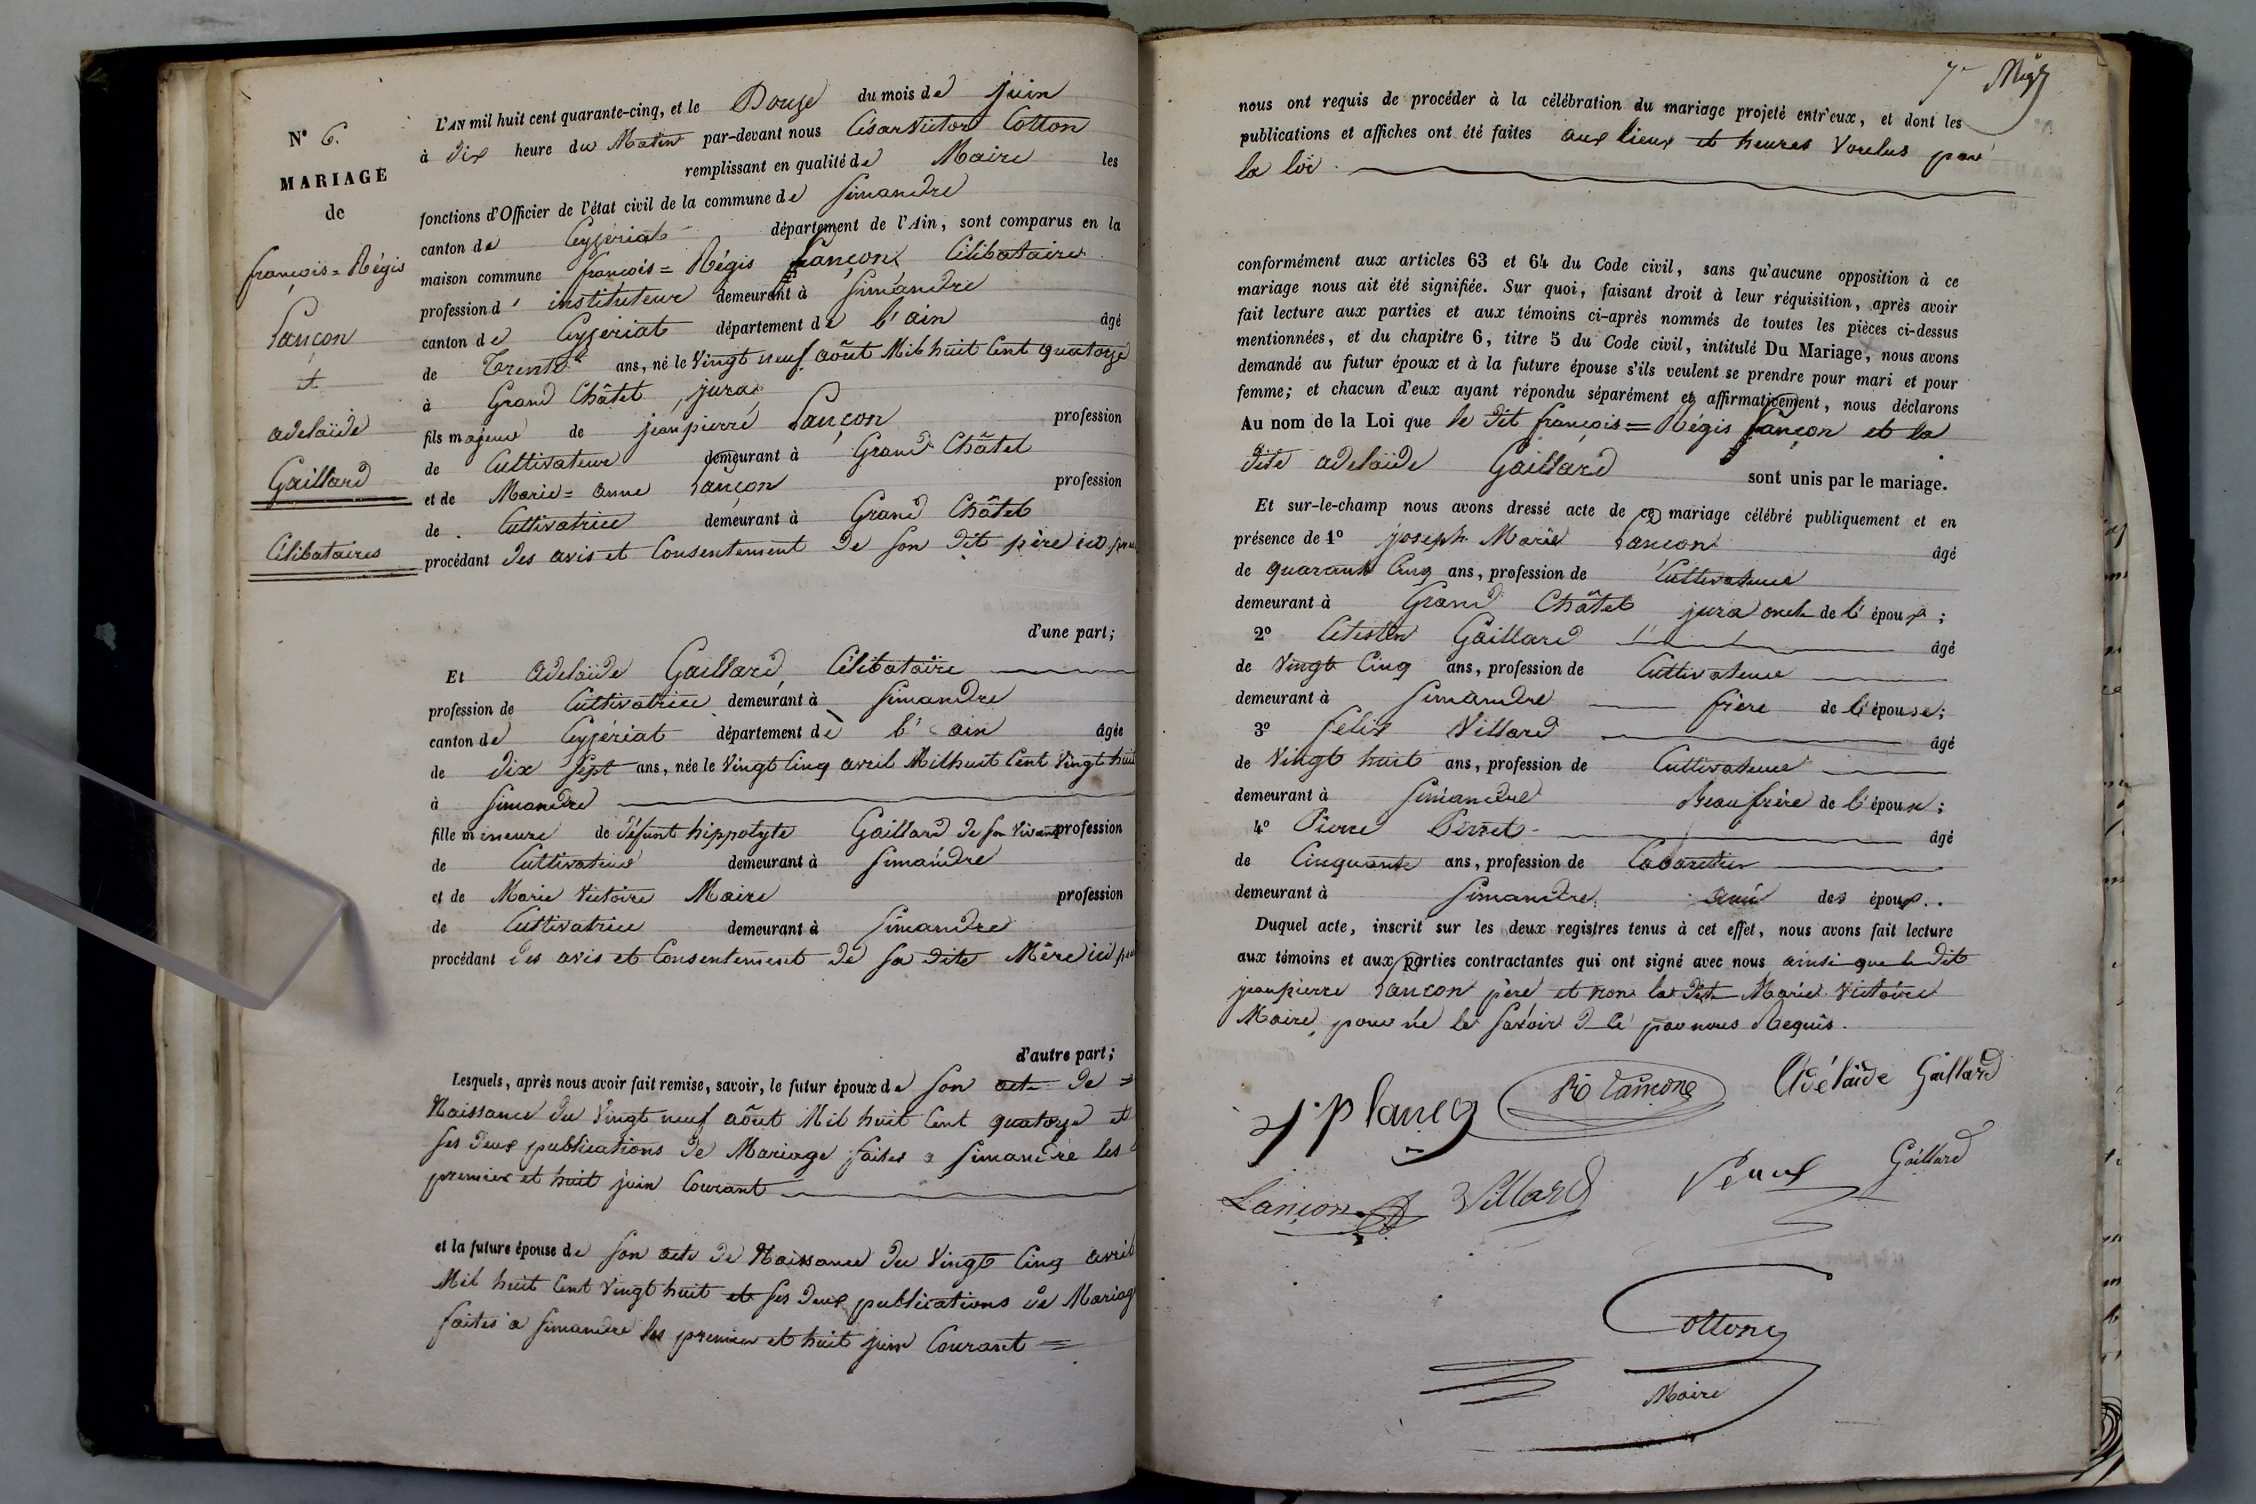 N° 6.
MARIAGE
de
françois = Régis
Lançon
et
adelaïde
Gaillard
Célibataires
L'AN mil huit cent quarante-cinq, et le Douze du mois de juin
à dix heure du Matin par-devant nous César Victor Cotton
remplissant en qualité de Maire les
fonctions d'Officier de l'état civil de la commune de Simandre
canton de Ceyzériat département de l'Ain, sont comparus en la
maison commune françois = Régis Lançon Célibataire
profession d' instituteur demeurant à Simandre
canton de Ceyzériat département de l'ain âgé
de Trente ans, né le Vingt neuf août Mil huit Cent quatorze
à Grand Châtel, jura
fils majeur de jean pierre Lançon profession
de Cultivateur demeurant à Grand Châtel
et de Marie = anne Lançon profession
de Cultivatrice demeurant à Grand Châtel
procédant des avis et Consentement de Son dit père ici
d'une part;
Et adelaïde Gaillard, Célibataire
profession de Cultivatrice demeurant à Simandre
canton de Ceyzériat département de l'ain âgée
de dix Sept ans, née le Vingt Cinq avril Mil huit Cent Vingt huit
à Simandre
fille mineure de défunt hippolyte Gaillard de Son Vivant profession
de Cultivateur demeurant à Simandre
et de Marie Victoire Maire profession
de Cultivatrice demeurant à Simandre
procédant des avis et Consentement de Sa dite Mère ici
d'autre part;
Lesquels, après nous avoir fait remise, savoir, le futur époux de Son acte de =
Naissance du Vingt neuf août Mil huit Cent quatorze et
Ses deux publications de Mariage faites a Simandre les
premier et huit juin Courant
et la future épouse de Son acte de Naissance du Vingt Cinq avril
Mil huit Cent Vingt huit et Ses deux publications de Mariage
faites a Simandre les premier et huit juin Courant =
nous ont requis de procéder à la célébration du mariage projeté entr'eux, et dont les
publications et affiches ont été faites aux lieux et heures Voulus par
la loi.
conformément aux articles 63 et 64 du Code civil, sans qu'aucune opposition à ce
mariage nous ait été signifiée. Sur quoi, faisant droit à leur réquisition, après avoir
fait lecture aux parties et aux témoins ci-après nommés de toutes les pièces ci-dessus
mentionnées, et du chapitre 6, titre 5 du Code civil, intitulé Du Mariage, nous avons
demandé au futur époux et à la future épouse s'ils veulent se prendre pour mari et pour
femme; et chacun d'eux ayant répondu séparément et affirmativement, nous déclarons
Au nom de la Loi que le dit françois = Régis Lançon et la
dite adelaïde Gaillard sont unis par le mariage.
Et sur-le-champ nous avons dressé acte de ce mariage célébré publiquement et en
présence de 1° joseph Marie Lançon âgé
de quarante Cinq ans, profession de Cultivateur
demeurant à Grand Châtel jura oncle de l'époux;
2° Célestin Gaillard âgé
de Vingt Cinq ans, profession de Cultivateur
demeurant à Simandre frère de l'épouse;
3° Félix Villard âgé
de Vingt huit ans, profession de Cultivateur
demeurant à Simandre Beaufrère de l'épouse;
4° Pierre Perret âgé
de Cinquante ans, profession de Cabaretier
demeurant à Simandre ami des époux.
Duquel acte, inscrit sur les deux registres tenus à cet effet, nous avons fait lecture
aux témoins et aux parties contractantes qui ont signé avec nous ainsi que le dit
jean pierre Lançon père et non la dite Marie Victoire
Maire, pour ne le Savoir de ce par nous Requis.
Adélaïde Gaillard
Lançon Villard Gaillard
Cotton
Maire